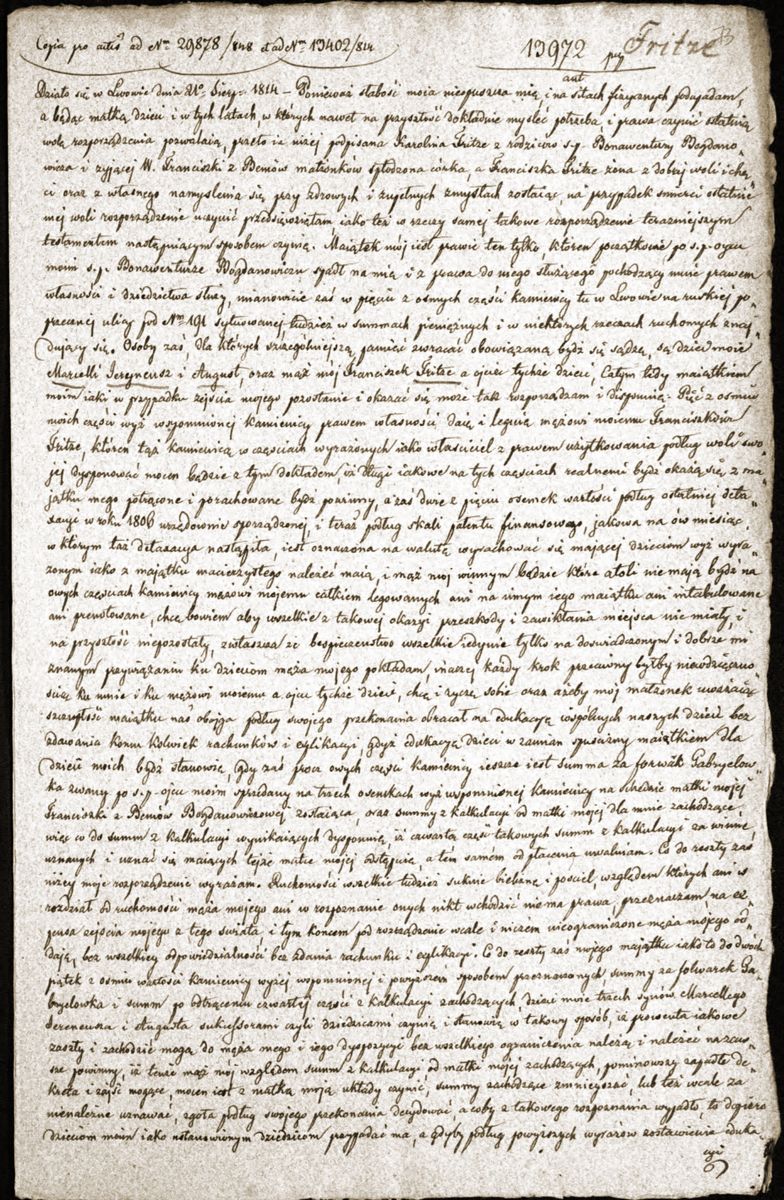 Copia pro actis ad Nrm 29878/848 et ad Nrm 13402/814
13972 Fritze
aut
Działo się w Lwowie dnia Sierp: 1814 – Ponieważ słabość moia nieopuszcza mię, i na siłach fizycznych podupadam,
a będąc matką dzieci i w tych latach, w których nawet na przyszłość dokładnie myśleć potrzeba i prawa czynić ostatnią
wolą rozporządzenia pozwalaią, przeto ia niżej podpisana Karolina Fritze z rodziców s.p. Bonawentury Bogdano„
wicza i żyjącej W. Franciszki z Bemów małżonków spłodzona córka, a Franciszka Fritze żona z dobrej woli i chę„
ci oraz z własnego namyślenia się przy zdrowych i zupełnych zmysłach zostaiąc, na przypadek śmierci ostatnie„
mej woli rozporządzenie uczynić przedsięwzięłam, iako też w rzeczy samej takowe rozporządzenie teraźniejszym
testamentem następuiącym sposobem czynię. Maiątek mój iest prawie ten tylko, któren początkowie po s.p. oycu
moim s.p. Bonawenturze Bogdanowiczu spadł na mię i z prawa do niego służącego pochodzący mnie prawem
własności i dziedzictwa służy, mianowicie zaś w pięciu z osmych części kamienicy tu w Lwowie na ruskiej po„
przecznej ulicy pod Nrm 191 sytuowanej, tudzież w summach pieniężnych i w niektórych rzeczach ruchomych znaj„
dujący się. Osoby zaś, dla których szczególniejszą pamięć zwracać obowiązaną bydź się sądzę, są dzieci moie
Marcelli Sereyneusz i August, oraz mąż mój Franciszek Fritze a ojciec tychże dzieci, Całym tedy maiątkiem
moim iaki w przypadku zejścia mojego pozostanie i okazać się może tak rozporządzam i dispenuię. Pięć z osmiu
moich części wyż wspomnionej kamienicy prawem własności daię i leguię mężowi moiemu Franciszkowi
Fritze, któren tąż kamienicą w częściach wyrażonych iako właściciel z prawem użytkowania podług woli swo„
jej dysponować mocen będzie z tym dokładem iż długi iakowe na tych częściach realnemi bydź okażą się z ma„
jątku mego potrącone i porachowane bydź powinny, a zaś dwie z pięciu osemek wartości podług ostatniej deta„
xacyi w roku 1806 urzędownie sporządzonej, i teraz podług skali patentu finansowego, jakowa na ów miesiąc
w którym taż detaxacya nastąpiła, iest oznaczona na walutę wyrachować się mającej dzieciom wyż wyra„
żonym iako z majątku macierzystego należeć maią, i mąż moj winnym będzie które atoli nie mają bydź na
owych częściach kamienicy mężowi mojemu całkiem legowanych ani na innym iego maiątku ani intabulowane
ani prenotowane, chcę bowiem aby wszelkie z takowej okazyi przeszkody i zawikłania miejsca nie miały, i
na przyszłość niepozostały, zwłaszcza że bespieczeństwo wszelkie iedynie tylko na doświadczonym i dobrze mi
znanym przywiązaniu ku dzieciom męża mojego pokładam, inaczej każdy krok przeciwny byłby niewdzięczno„
ścią ku mnie i ku mężowi moiemu a ojcu tychże dzieci, chcę i życzę sobie oraz ażeby mój małżonek uważaiąc
szczupłość maiątku nas obojga podług swojego przekonania obracał na edukacyą wspólnych naszych dzieci bez
zdawania komu kolwiek rachunków i explikacyi, gdyż edukacyą dzieci w zamian spuścizny maiątkiem dla
dzieci moich bydź stanowię, gdy zaś procz owych części kamienicy ieszcze iest summa za forwark Gabryelow„
ka zwany po s.p. ojcu moim sprzedany na trzech osemkach wyż wspomnionej kamienicy na schedzie matki mojej
Franciszka z Bemów Bogdanowiczowej zostaiąca, oraz summy z kalkulacyi od matki mojej dla mnie zachodzące,
więc co do summ z kalkulacyi wynikaiących dysponuię, iż czwartą część takowych summ z kalkulacyi za winne
uznanych i uznać się maiących tejże matce mojej odstępuię a tem samém od płacenia uwalniam. Co do reszty zaś
niżej moje rozporządzenie wyrażam. Ruchomości wszelkie tudzież suknie bieliznę i pościel, względem których ani w
rozdział od ruchomości męża mojego ani w rozpoznanie onych nikt wchodzić nie ma prawa, przeznaczam na ex„
pensa zejścia mojego z tego świata i tym końcem pod rozrządzenie wcale i niczem nieograniczone męża mojego od„
daję, bez wszelkiej odpowiedzialności bez zdania rachunku i explikacyi. Co do reszty zaś mojego majątku iako to do dwóch
piątek z osmiu wartości kamienicy wyżej wspomnionej i powyższem sposobem przeznaczonych summy za folwarek Ga„
bryelowka i summ po odtrąceniu czwartej części z kalkulacyi zachodzących dzieci moie trzech synów Marcellego
Sereneusza i Augusta sukcessorami czyli dziedzicami czynię i stanowię w takowy sposób, iż prowizya iakowe
zaszły i zachodzić mogą do męża mego i iego dyspozycyi bez wszelkiego ograniczenia należą i należeć na zaw„
sze powinny, iż tenże mąż mój względem summ z kalkulacyi od matki mojej zachodzących, pominąwszy zapadłe de„
kreta i zajść mogące, mocen iest z matką moją układy czynić, summy zachodzące zmniejszyć, lub też wcale za
nienależne uznawać, zgoła podług swojego przekonania decydować, a coby z takowego rozpoznania wypadło, to dopiero
dzieciom moim iako ustanowionym dziedzicom przypadać ma, a gdyby podług powyższych wyrazów zostawienia eduka„
cyi